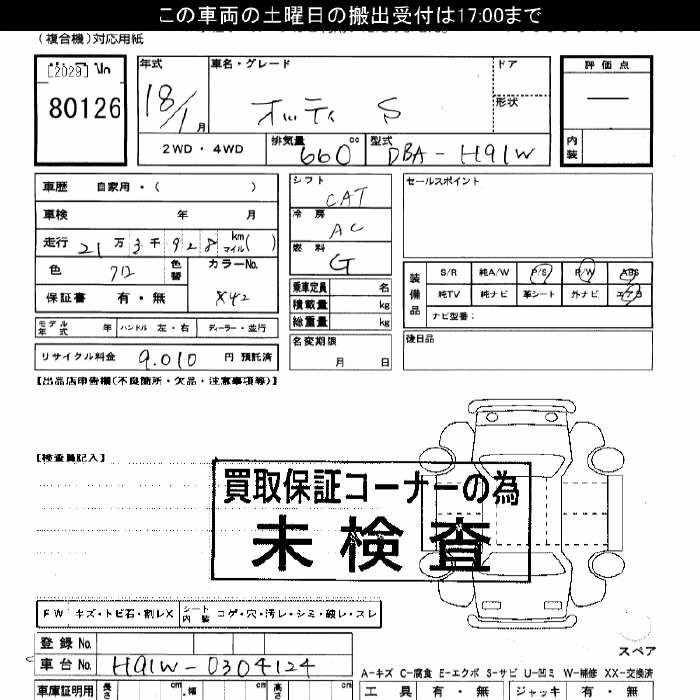 この車両の土曜日の搬出受付は17:00まで
(複合機)対応用紙
[2029]
80126
年式 18/1 月
車名・グレード オッティ S
ドア
形状
評価点 —
内装
2WD・4WD
排気量 660 cc
型式 DBA-H91W
車歴 自家用・( )
車検 年 月
走行 21万3千928 km マイル( )
色 色替 カラーNo. X42
保証書 有・無
モデル年式 年 ハンドル 左・右 ディーラー・並行
リサイクル料金 9,010 円 預託済
シフト CAT
冷房 AC
燃料 G
乗車定員 名
積載量 kg
総重量 kg
名変期限 月 日
セールスポイント
装備品
S/R 純A/W P/S P/W ABS
純TV 純ナビ 革シート 外ナビ エアB
ナビ型番:
後日品
【出品店申告欄(不良箇所・欠品・注意事項等)】
【検査員記入】
買取保証コーナーの為
未検査
FW キズ・トビ石・割レX シート内装 コゲ・穴・汚レ・シミ・破レ・スレ
登録 No.
車台 No. H91W-0304124
スペア
A-キズ C-腐食 E-エクボ S-サビ U-凹ミ W-補修 XX-交換済
車庫証明用 長さ cm 幅 cm 高さ cm
工具 有・無 ジャッキ 有・無